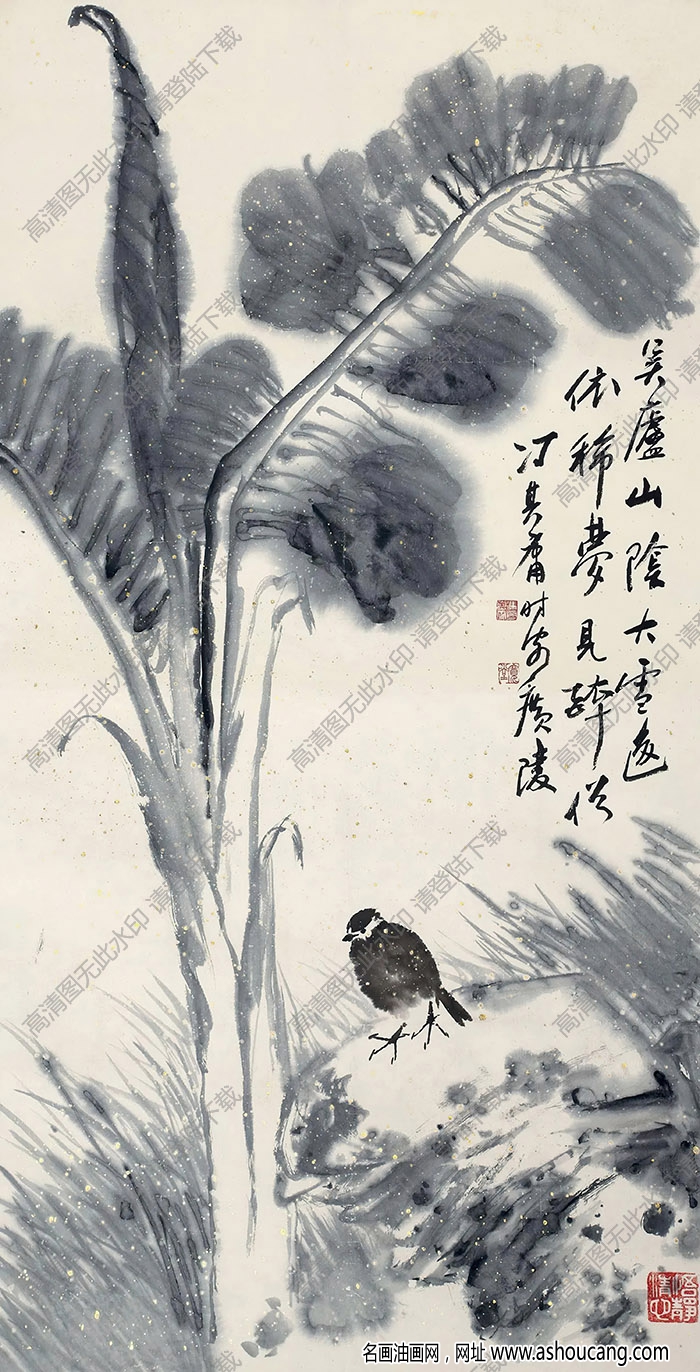 吴廬山陰大雪
依稀夢見
冯其庸时客廣陵
高清图无此水印 请登陆下载
名画油画网，网址 www.ashoucang.com